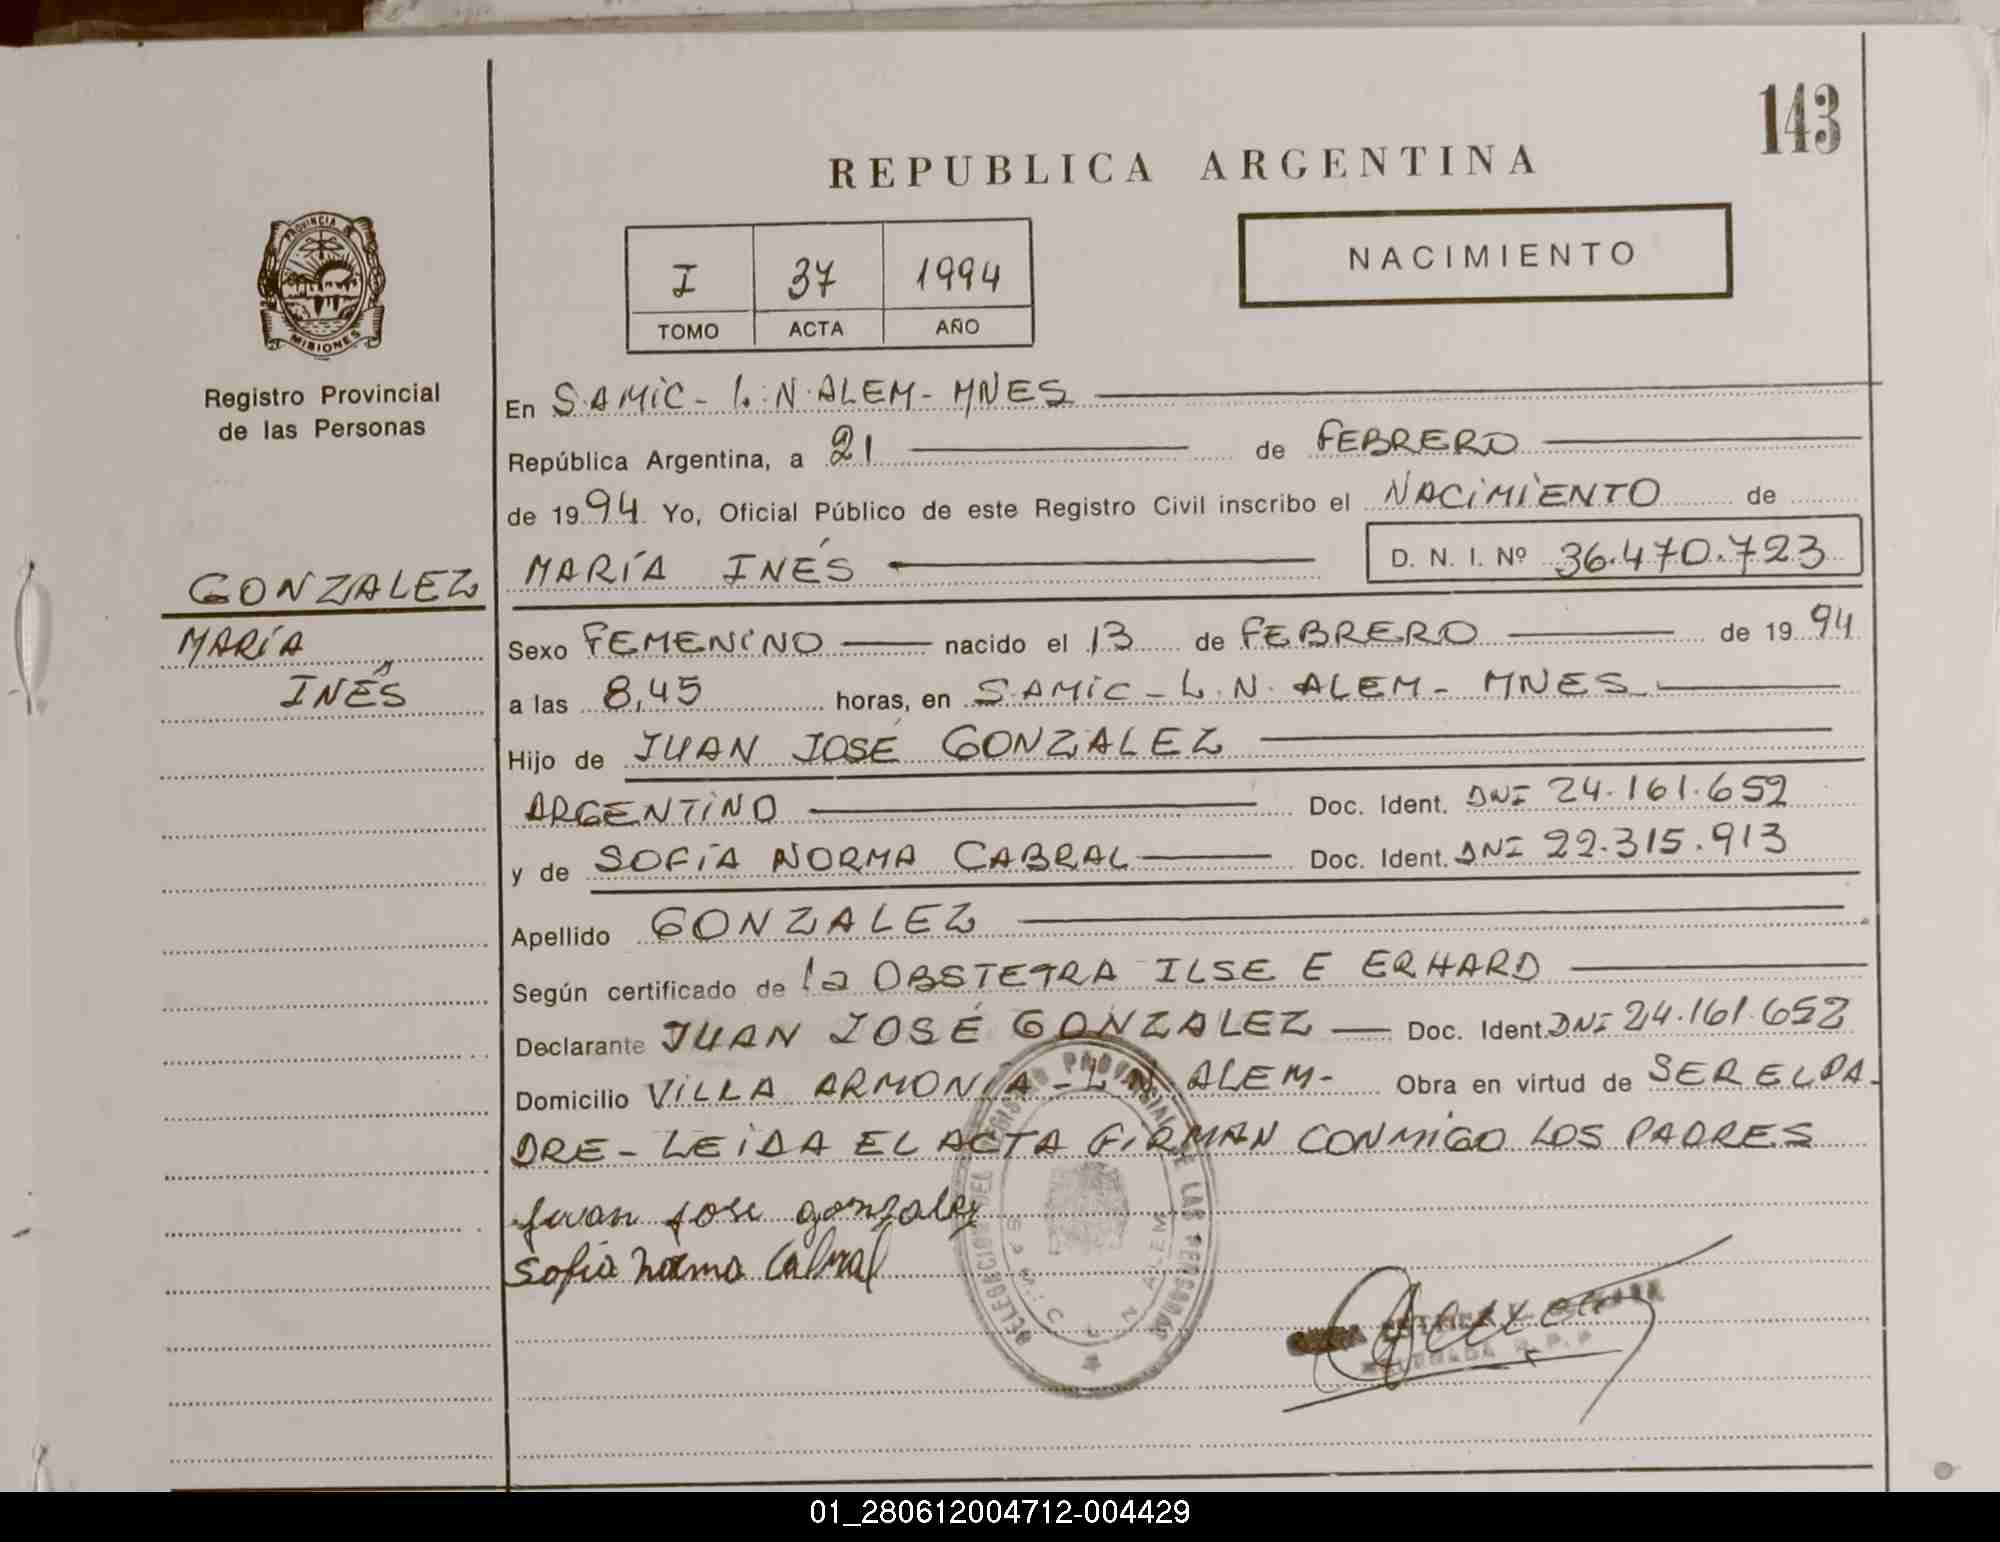 143
REPUBLICA ARGENTINA
PROVINCIA DE
MISIONES
Registro Provincial
de las Personas
I 37 1994
TOMO ACTA AÑO
NACIMIENTO
En S.AMIC - L.N.ALEM - MNES
República Argentina, a 21 de FEBRERO
de 1994 Yo, Oficial Público de este Registro Civil inscribo el NACIMIENTO de
GONZALEZ
MARÍA
INÉS
MARÍA INÉS D. N. I. Nº 36.470.723
Sexo FEMENINO nacido el 13 de FEBRERO de 1994
a las 8,45 horas, en S.AMIC - L.N. ALEM - MNES
Hijo de JUAN JOSÉ GONZALEZ
ARGENTINO Doc. Ident. DNI 24.161.652
y de SOFÍA NORMA CABRAL Doc. Ident. DNI 22.315.913
Apellido GONZALEZ
Según certificado de la OBSTETRA ILSE E ERHARD
Declarante JUAN JOSÉ GONZALEZ Doc. Ident. DNI 24.161.652
Domicilio VILLA ARMONÍA - L.N. ALEM - Obra en virtud de SER EL PA-
DRE - LEIDA EL ACTA FIRMAN CONMIGO LOS PADRES
Juan Jose gonzalez
Sofia Norma Cabral
DELEGACION DEL REGISTRO PROVINCIAL DE LAS PERSONAS
N ALEM
R.P.P.
01_280612004712-004429